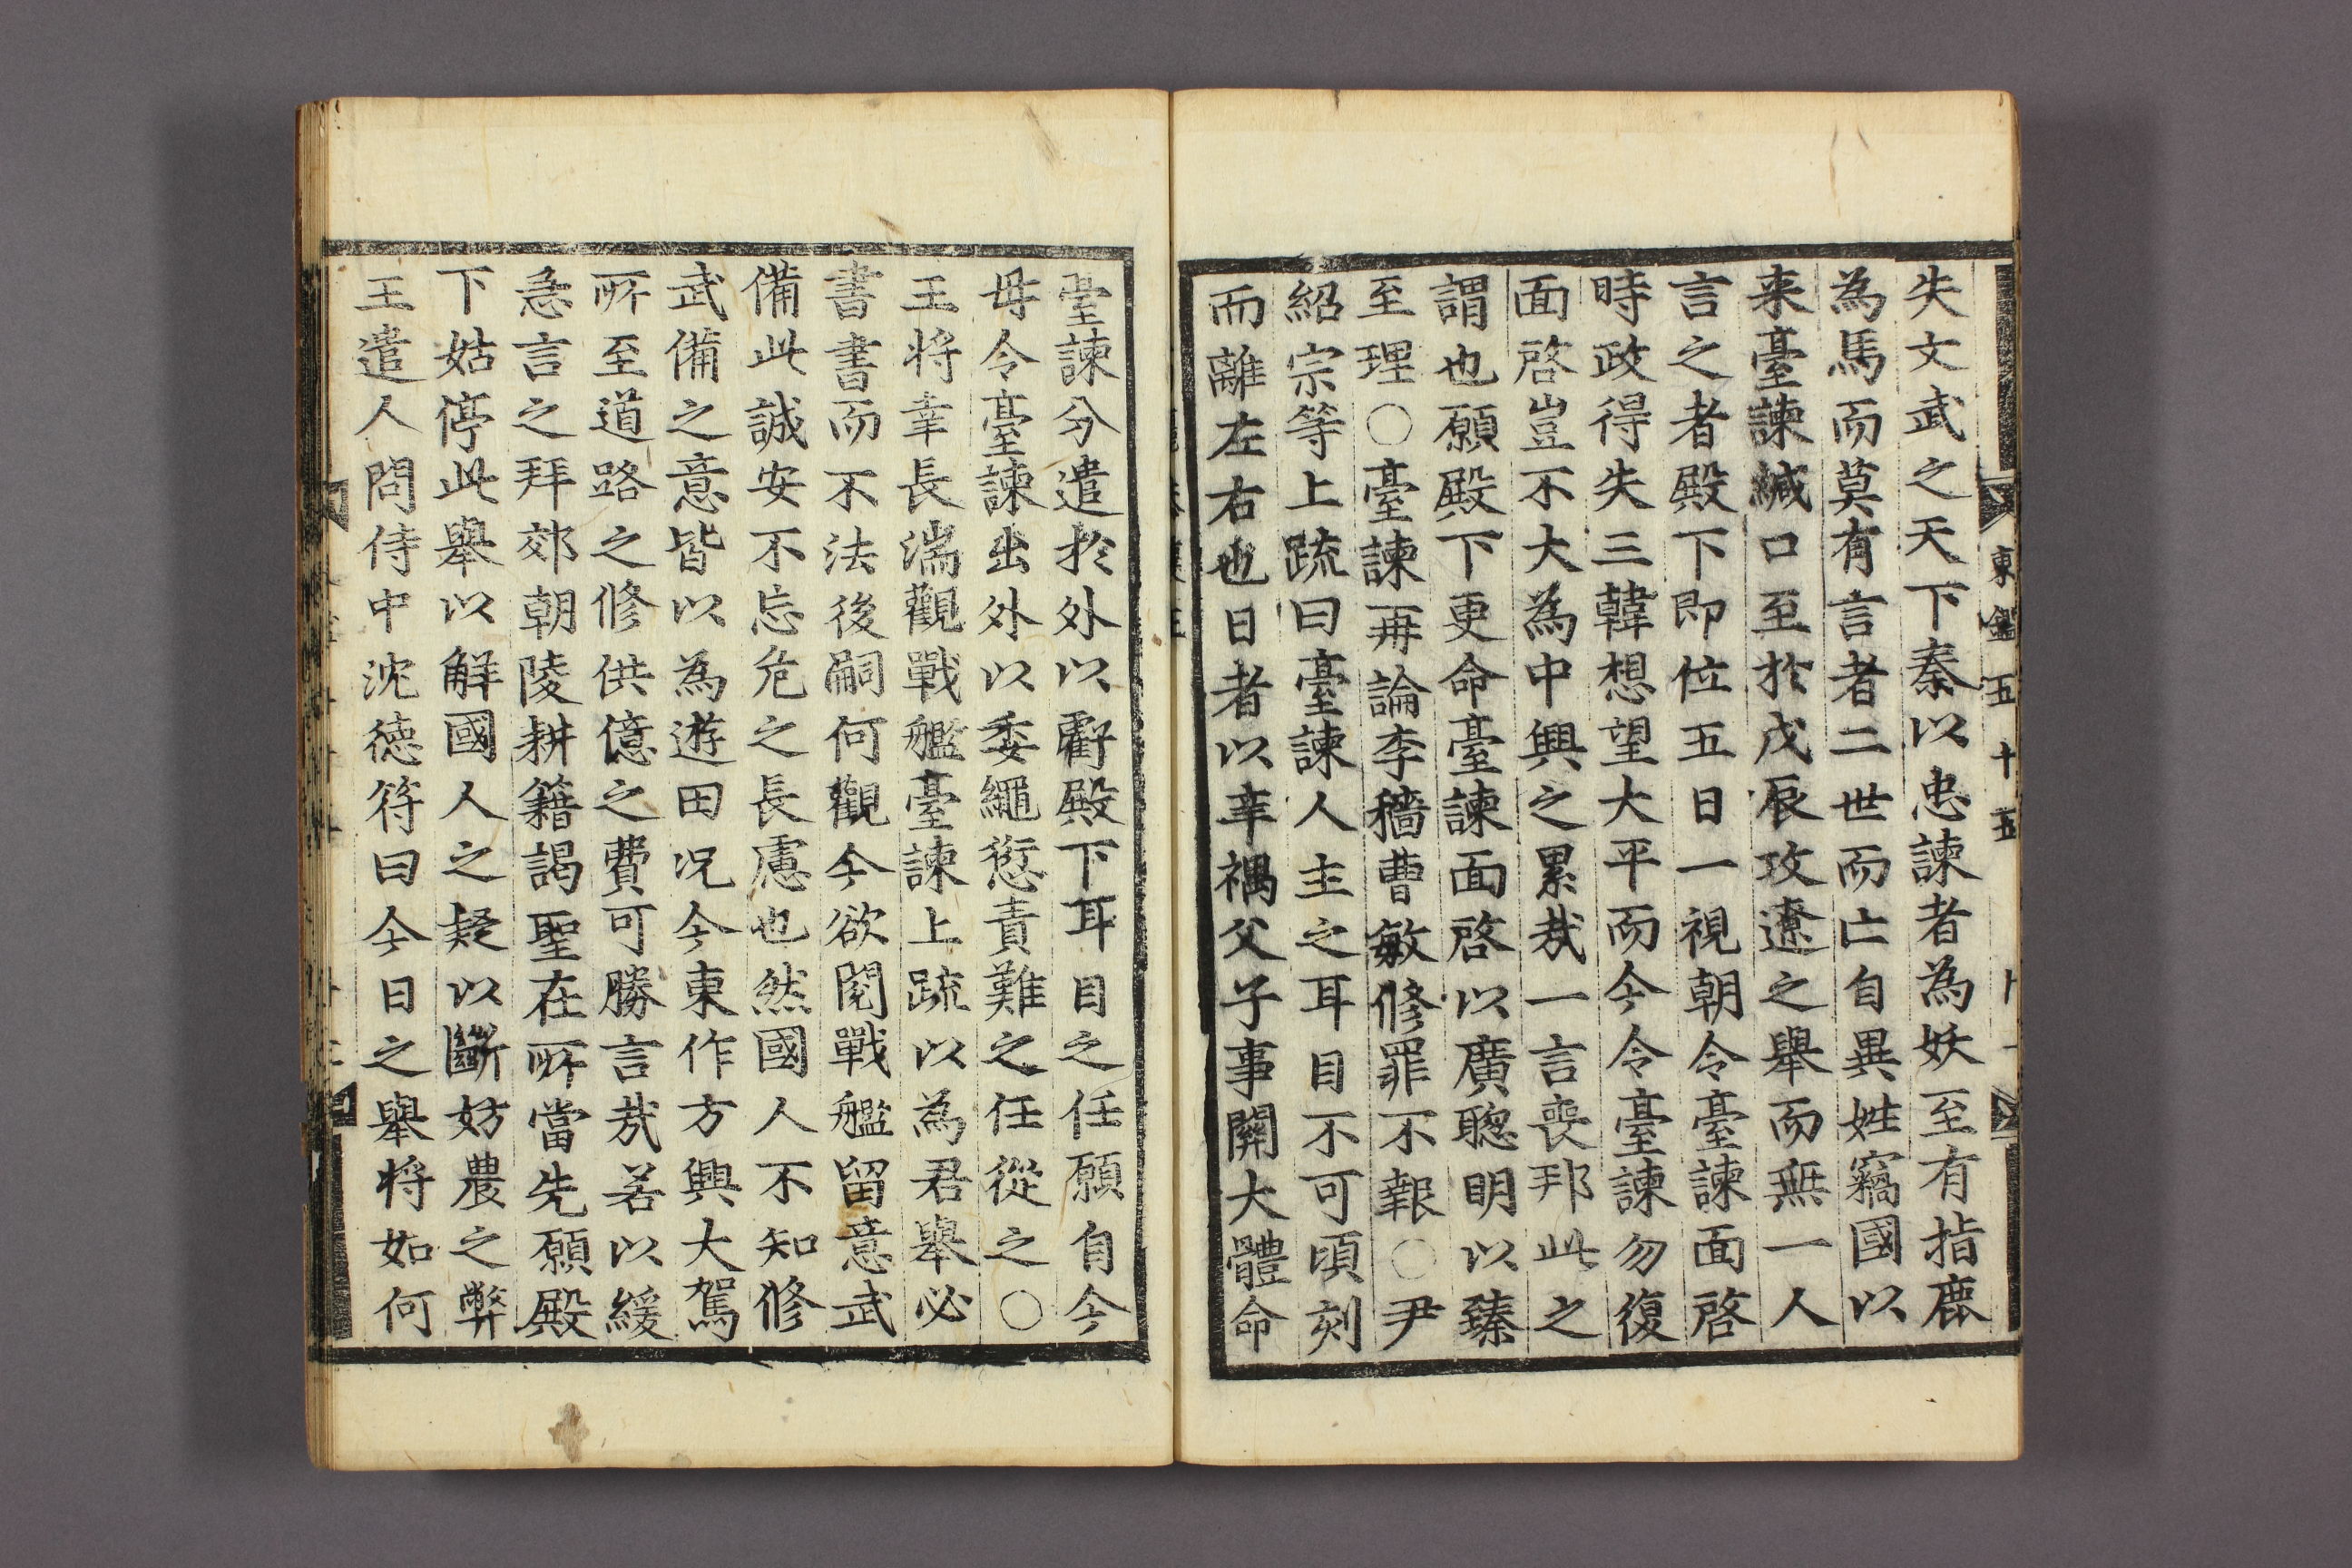 東鑑五十五
失文武之天下秦以忠諫者為妖至有指鹿
為馬而莫有言者二世而亡自異姓竊國以
来臺諫緘口至於戊辰攻遼之舉而無一人
言之者殿下即位五日一視朝令臺諫面啓
時政得失三韓想望大平而今令臺諫勿復
面啓豈不大為中興之累㢤一言喪邦此之
謂也願殿下更命臺諫面啓以廣聦明以臻
至理○臺諫再論李穡曹敏修罪不報○尹
紹宗等上疏曰臺諫人主之耳目不可頃刻
而離左右也日者以辛禑父子事關大體命
臺諫分遣於外以霱殿下耳目之任願自今
毋令臺諫出外以委繩愆責難之任從之○
王将幸長湍觀戰艦臺諫上疏以為君舉必
書書而不法後嗣何觀今欲閱戰艦留意武
備此誠安不忘危之長慮也然國人不知修
武備之意皆以為遊田况今東作方興大駕
所至道路之修供億之費可勝言㢤若以緩
急言之拜郊朝陵耕籍謁聖在所當先願殿
下姑停此舉以解國人之疑以斷妨農之弊
王遣人問侍中沈徳符曰今日之舉将如何